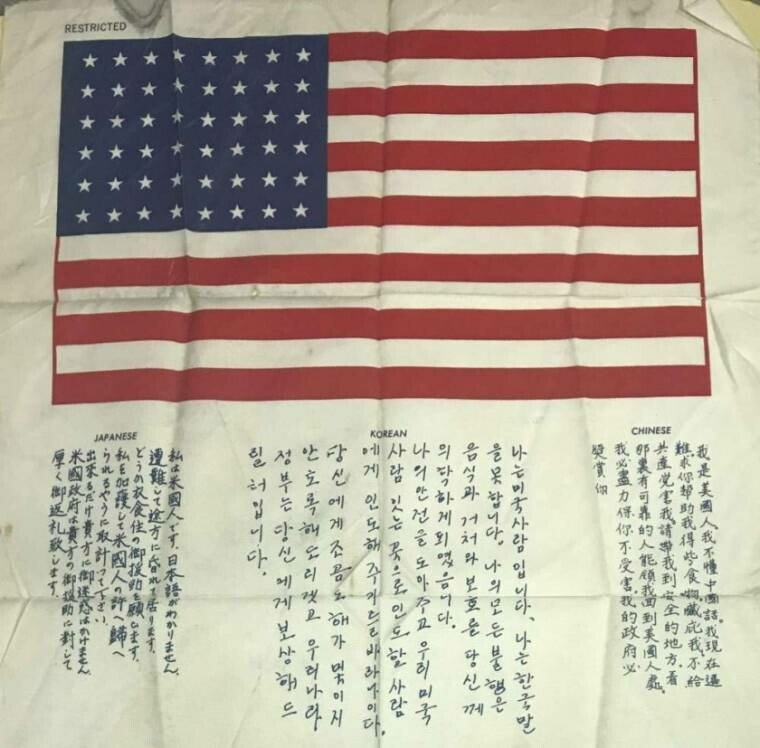 RESTRICTED
JAPANESE
私は米國人です。日本語がわかりません。
遭難して途方に暮れて居ります。
どうか衣食住の御援助を願ひます。
私を加護して米國人の所へ歸へ
られるやうに取計って下さい。
出来るだけ貴方に御迷惑はかけません。
米國政府は貴方の御援助に對して
厚く御返礼致します。
KOREAN
나는 미국사람 입니다. 나는 한국말
을 못합니다. 나의 모든 불행은
음식과 거처와 보호를 당신께
의탁하게 되였음니다.
나의 안전을 도아주고 우리 미국
사람 잇는 곳으로 인도할 사람
에게 인도해 주기를 바라나이다.
당신에게 조곰도 해가 멋이지
안토록 해 드리겟고 우리나라
정부는 당신에게 보상해 드
릴 터입니다.
CHINESE
我是美國人。我不懂中國話。我現在遇
難，求你幫助我得些食物，藏庇我，不給
共產党害我，請帶我到安全的地方，看
那裏有可靠的人能領我回到美國人處。
我必盡力保你不受害。我的政府必
獎賞你